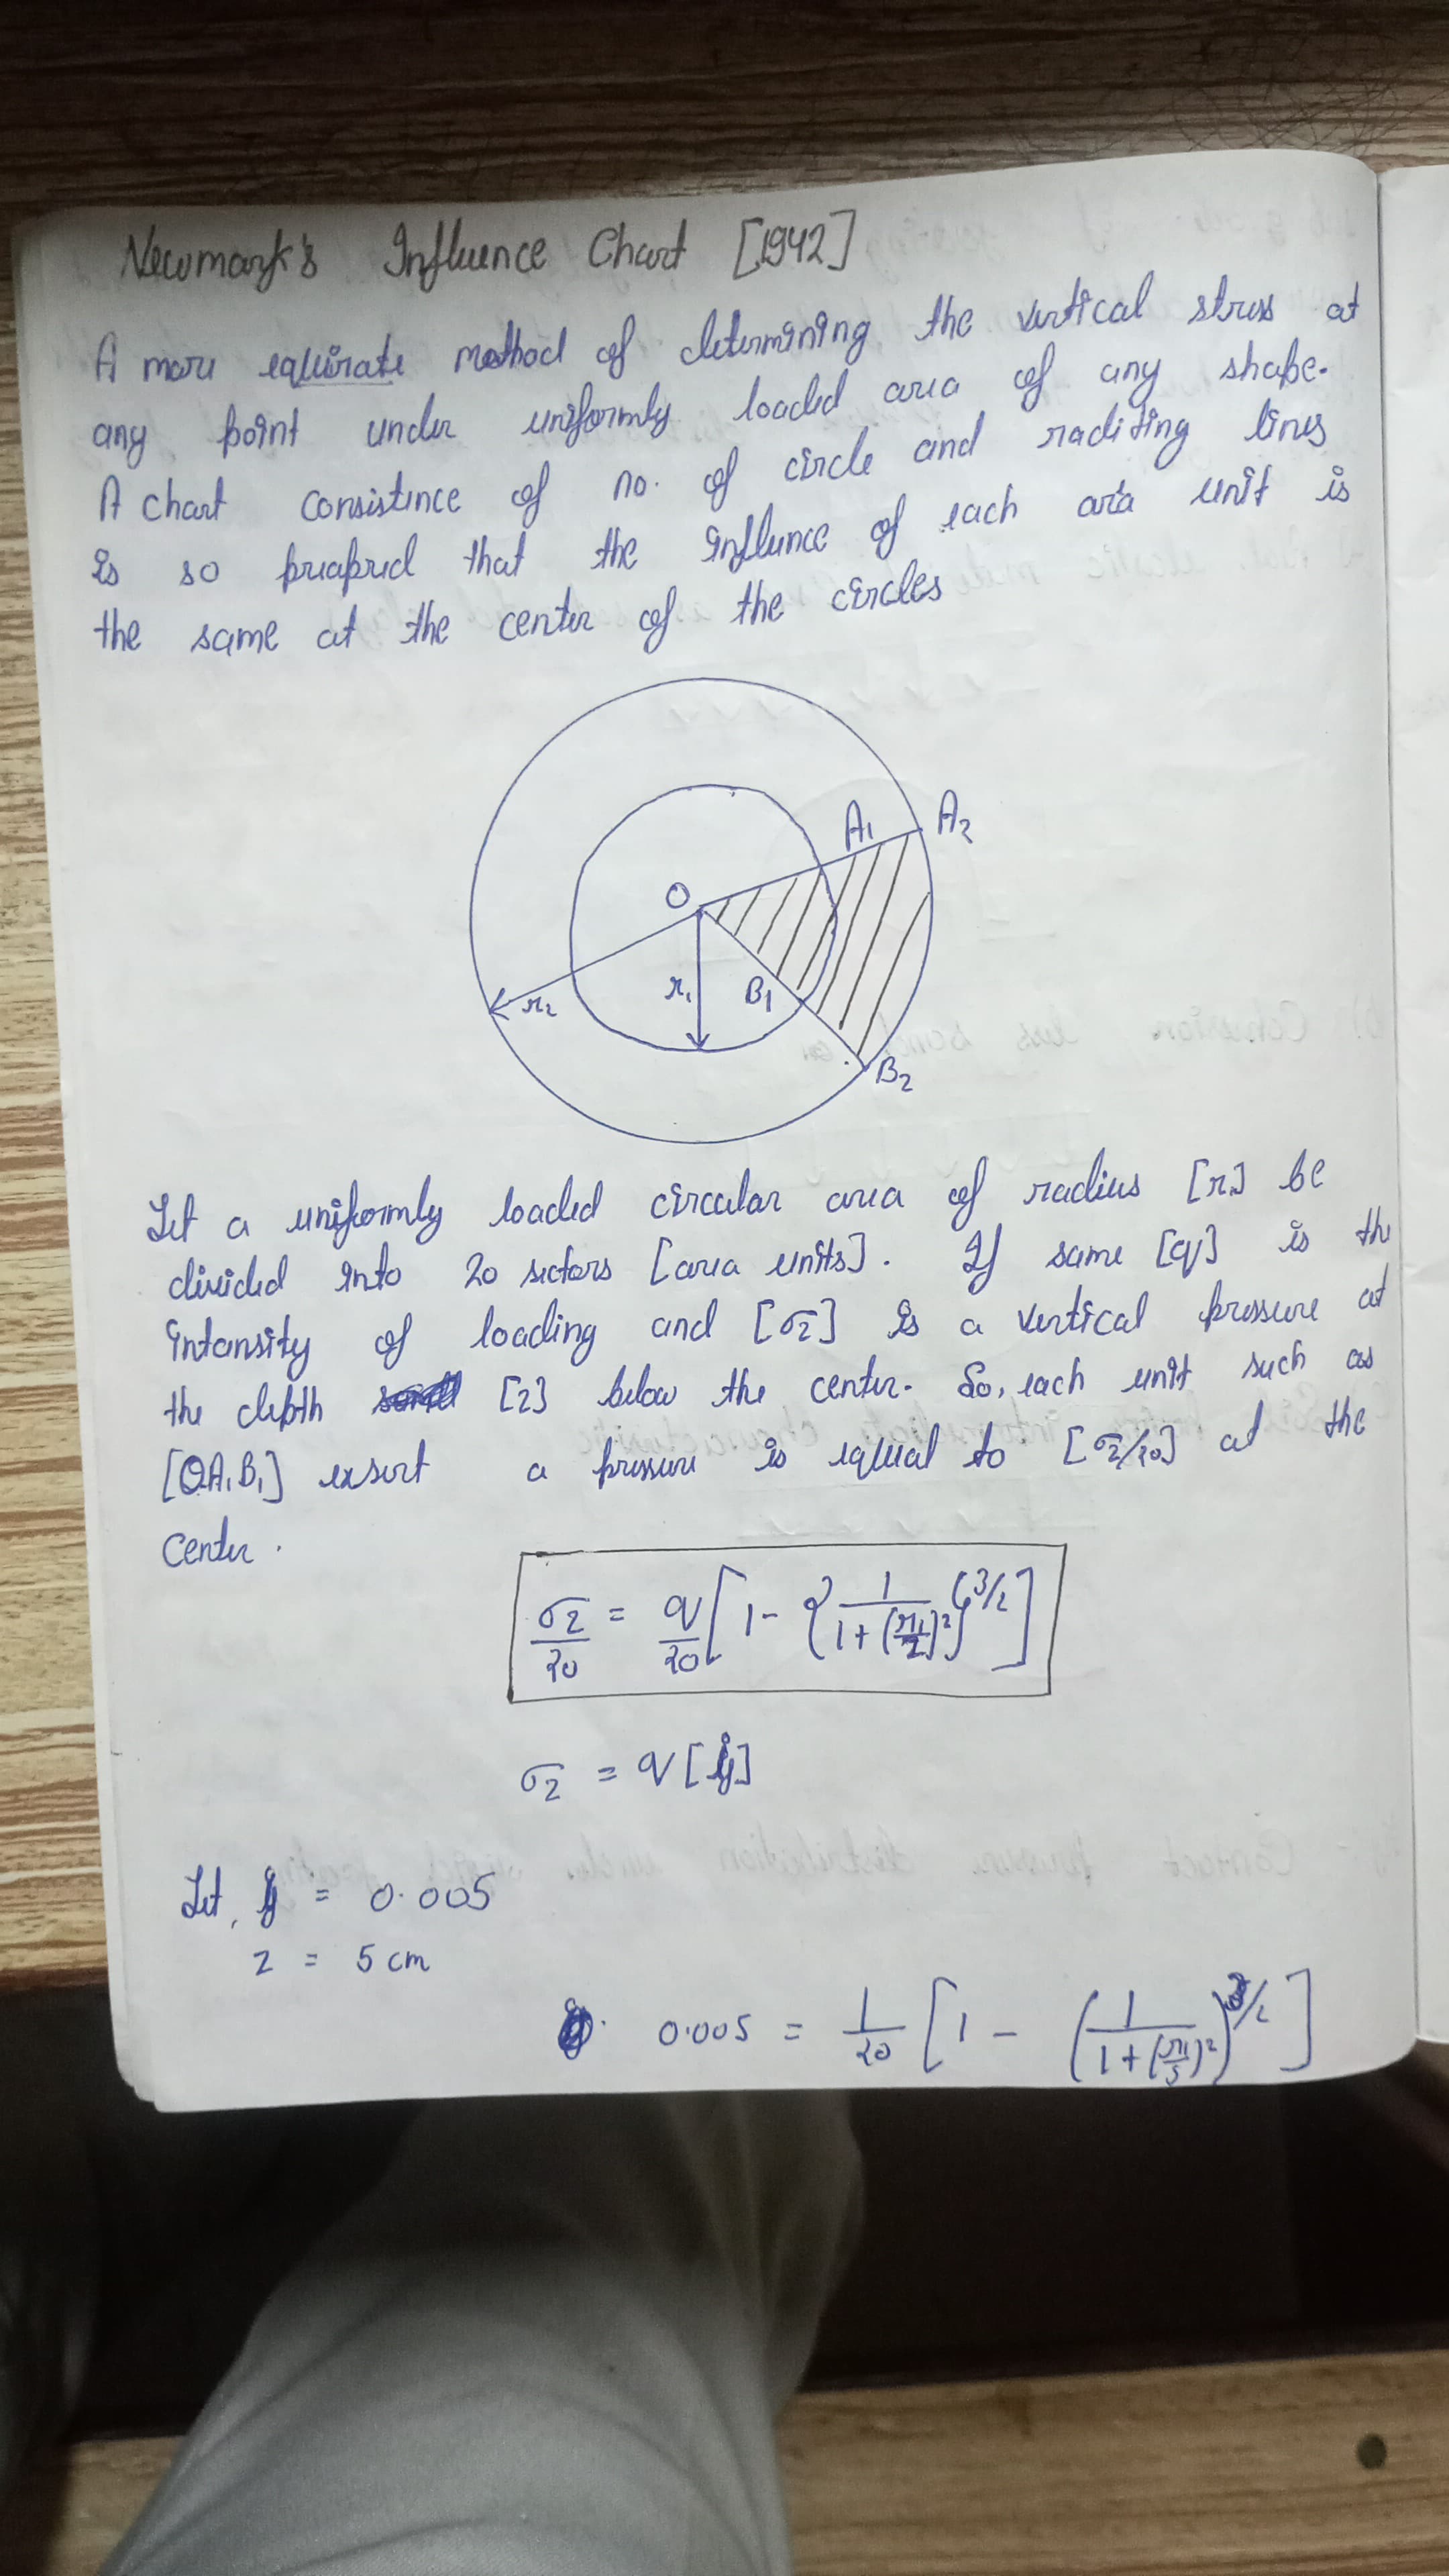 Newmark's Influence Chart [1942]
A more equirate method of determining the vertical stress at
any point under uniformly loaded area of any shape.
A chart consistence of no. of circle and raditing lines
is so preapred that the influnce of each area unit is
the same at the center of the circles
A1 A2
O
r2 r1 B1
B2
Let a uniformly loaded circular area of radius [r1] be
divided into 20 sectors [area units]. If same [q] is the
intansity of loading and [σz] is a vertical pressure at
the depth [z] below the center. So, each unit such as
[OA1B1] exsert a pressure is equal to [σz/20] at the
center.
σz/20 = q/20 [1 - {1/(1+(r1/z)²)}^3/2]
σz = q[if]
Let, if = 0.005
z = 5 cm
0.005 = 1/20 [1 - (1/(1+(r1/5)²))^3/2]